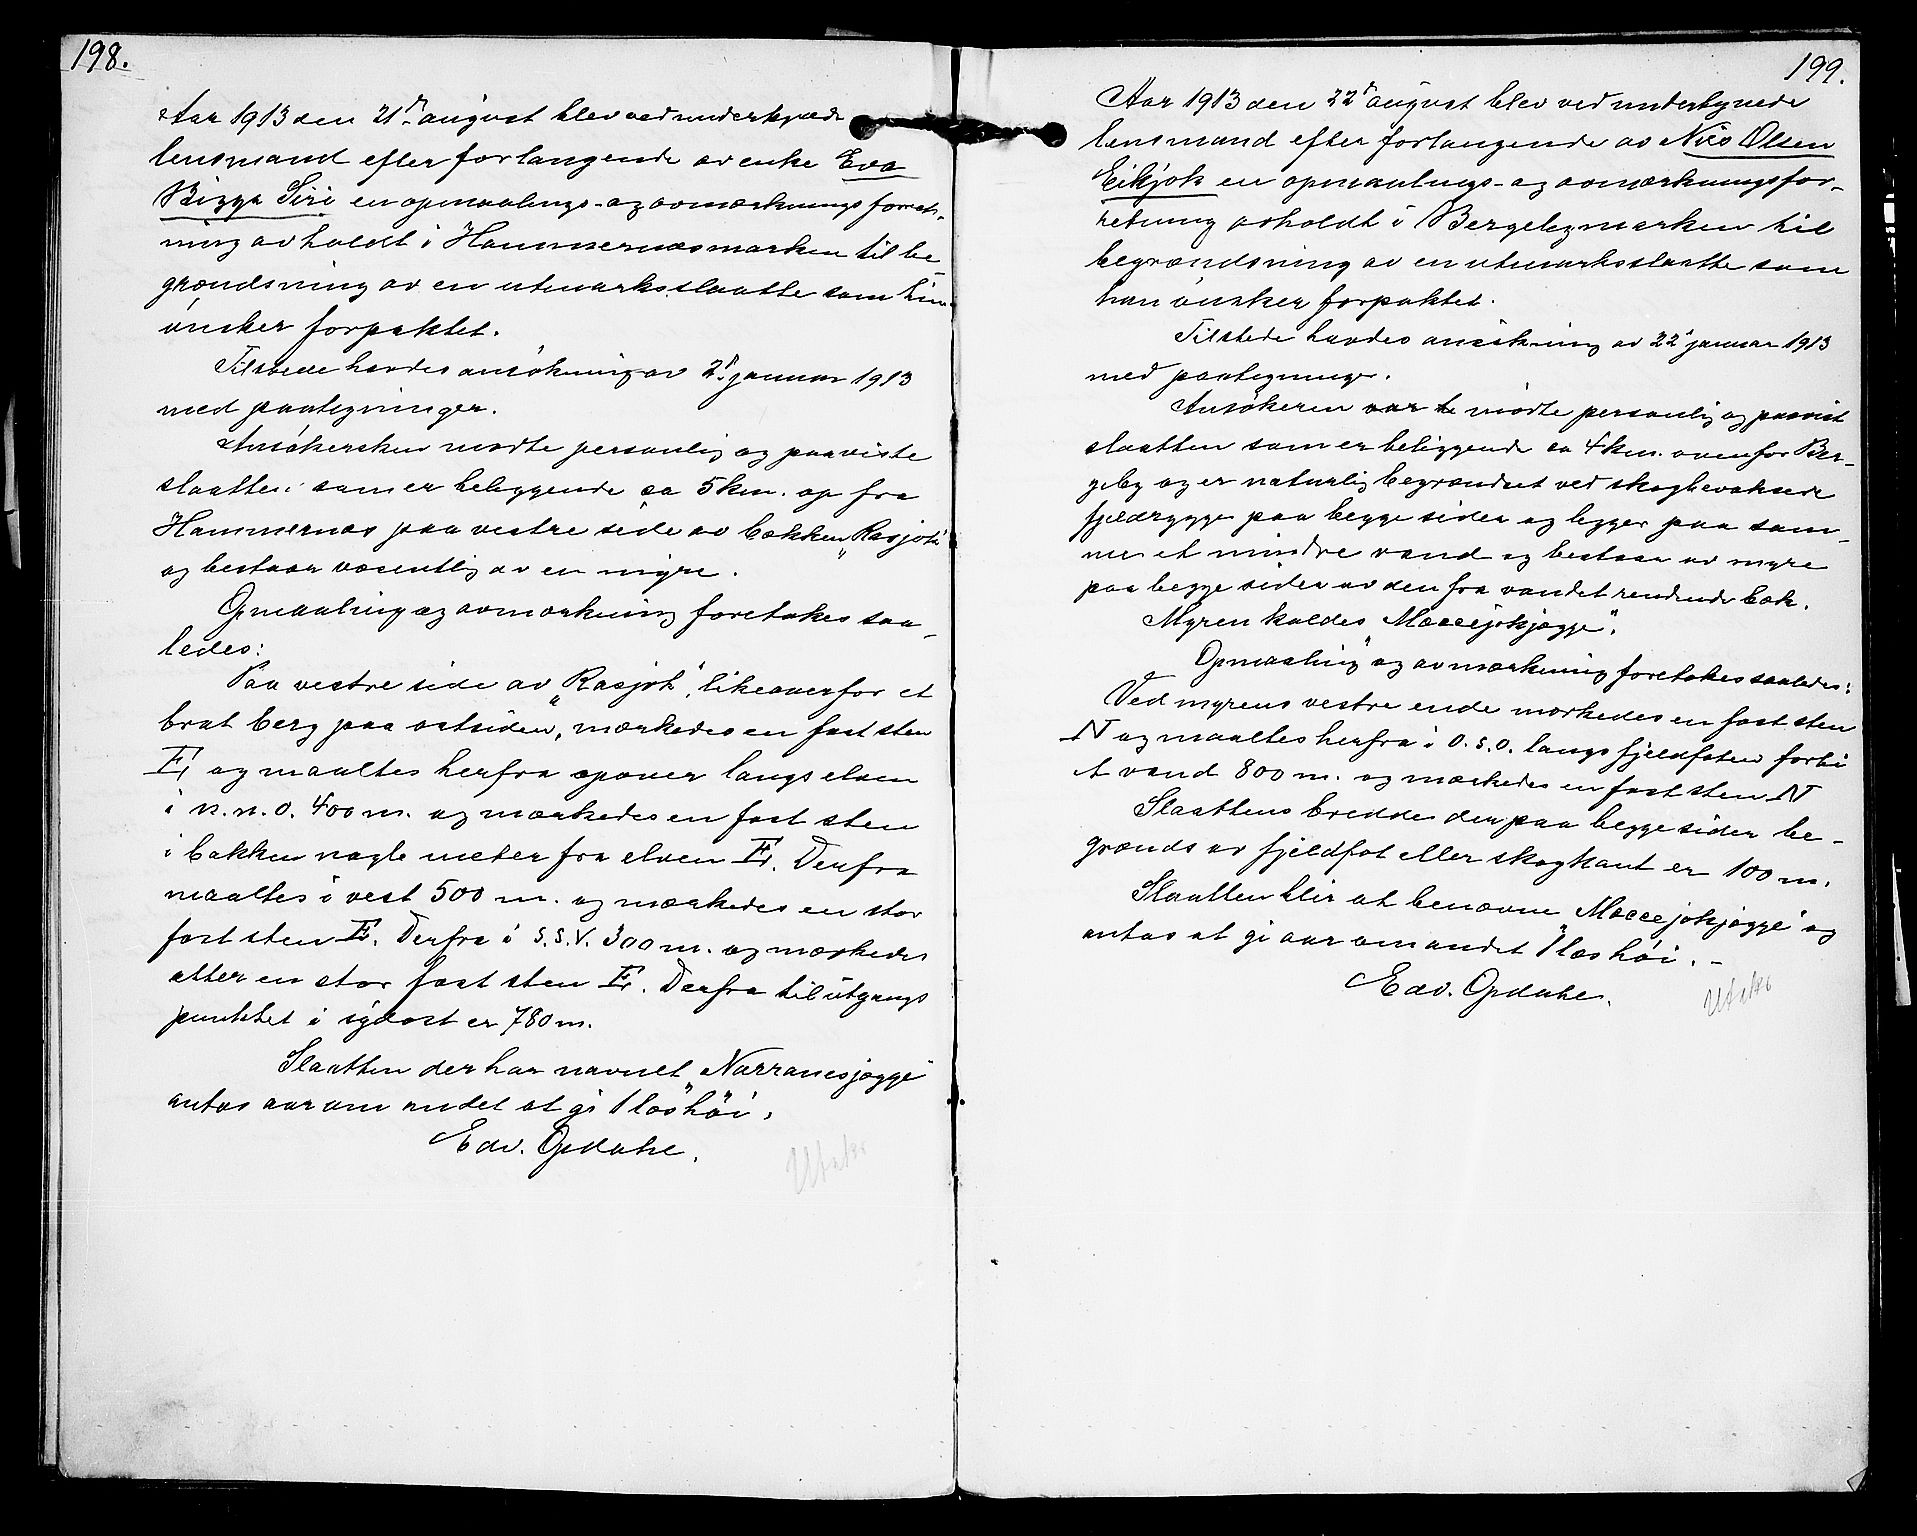 198.
Aar 1913 den 21de august blev ved undertegnede
lensmand efter forlangende av enke Eva
Bigga Siri en opmaalings- og avmærkningsforret-
ning avholdt i Hammernæsmarken til be-
grændsning av en utmarksslaatte som hun
ønsker forpaktet.
Tilstede havdes ansøkning av 2. januar 1913
med paategninger.
Ansøkersken mødte personlig og paaviste
slaatten som er beliggende ca 5 km. op fra
Hammernæs paa vestre side av bækken „Rasjok"
og bestaar væsentlig av en myre.
Opmaaling og avmærkning foretokes saa-
ledes:
Paa vestre side av „Rasjok", likeoverfor et
brat berg paa østsiden, mærkedes en fast sten
E og maaltes herfra opover langs elven
i n.n.o. 400 m. og mærkedes en fast sten
i bakken nogle meter fra elven E. Derfra
maaltes i vest 500 m. og mærkedes en stor
fast sten E. Derfra i S.S.V. 300 m. og mærkedes
atter en stor fast sten E. Derfra til utgangs
punktet i sydost er 780 m.
Slaatten der har navnet „Narranesjægge"
antas aar om andet at gi 1 læs høi.
Edv. Opdahl.
199.
Aar 1913 den 22de august blev ved undertegnede
lensmand efter forlangende av Nils Olsen
Eikjok en opmaalings- og avmærkningsfor-
retning avholdt i Bergebymarken til
begrændsning av en utmarksslaatte som
han ønsker forpaktet.
Tilstede havdes ansøkning av 22. januar 1913
med paategninger.
Ansøkeren var te mødte personlig og paavist
slaatten som er beliggende ca 4 km. ovenfor Ber-
geby og er naturlig begrændset ved skogbevoksede
fjeldrygge paa begge sider og ligger paa sam-
me et mindre vand og bestaar av myre
paa begge sider av den fra vandet rendende bæk.
Myren kaldes „Maccejokjægge".
Opmaaling og avmærkning foretokes saaledes:
Ved myrens vestre ende mærkedes en fast sten
N og maaltes herfra i O.S.O. langs fjeldfoten forbi
et vand 800 m. og mærkedes en fast sten N
Slaattens bredde der paa begge sider be-
grænds av fjeldfot eller skogkant er 100 m.
Slaatten blir at benævne „Maccejokjægge" og
antas at gi aar om andet 1 læs høi. -
Edv. Opdahl.